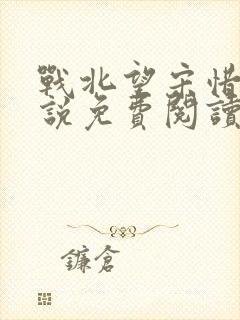 戰北望宋惜
說免費閱讀
鐮倉